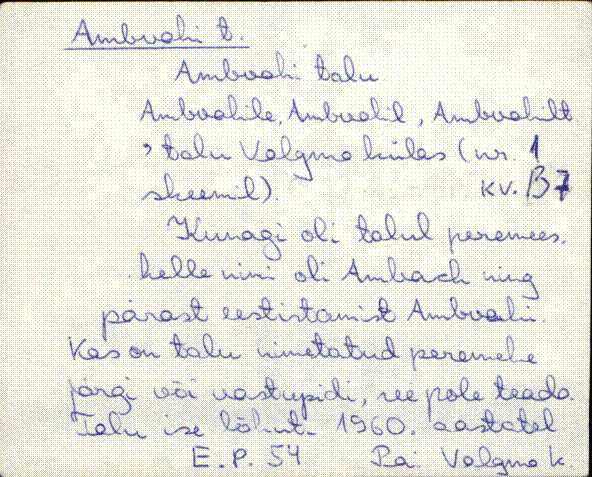 Ambvahi t.
Ambvahi talu
Ambvahile, Ambvahil, Ambvahilt
, talu Valgma külas (nr. 1
skeemil). KV. B7
Kunagi oli talul peremees,
kelle nimi oli Ambach ning
pärast eestistamist Ambvahi.
Kas on talu nimetatud peremehe
järgi või vastupidi, see pole teada.
Talu ise lõhuti 1960. aastatel
E.P. 54 Pai. Valgma k.